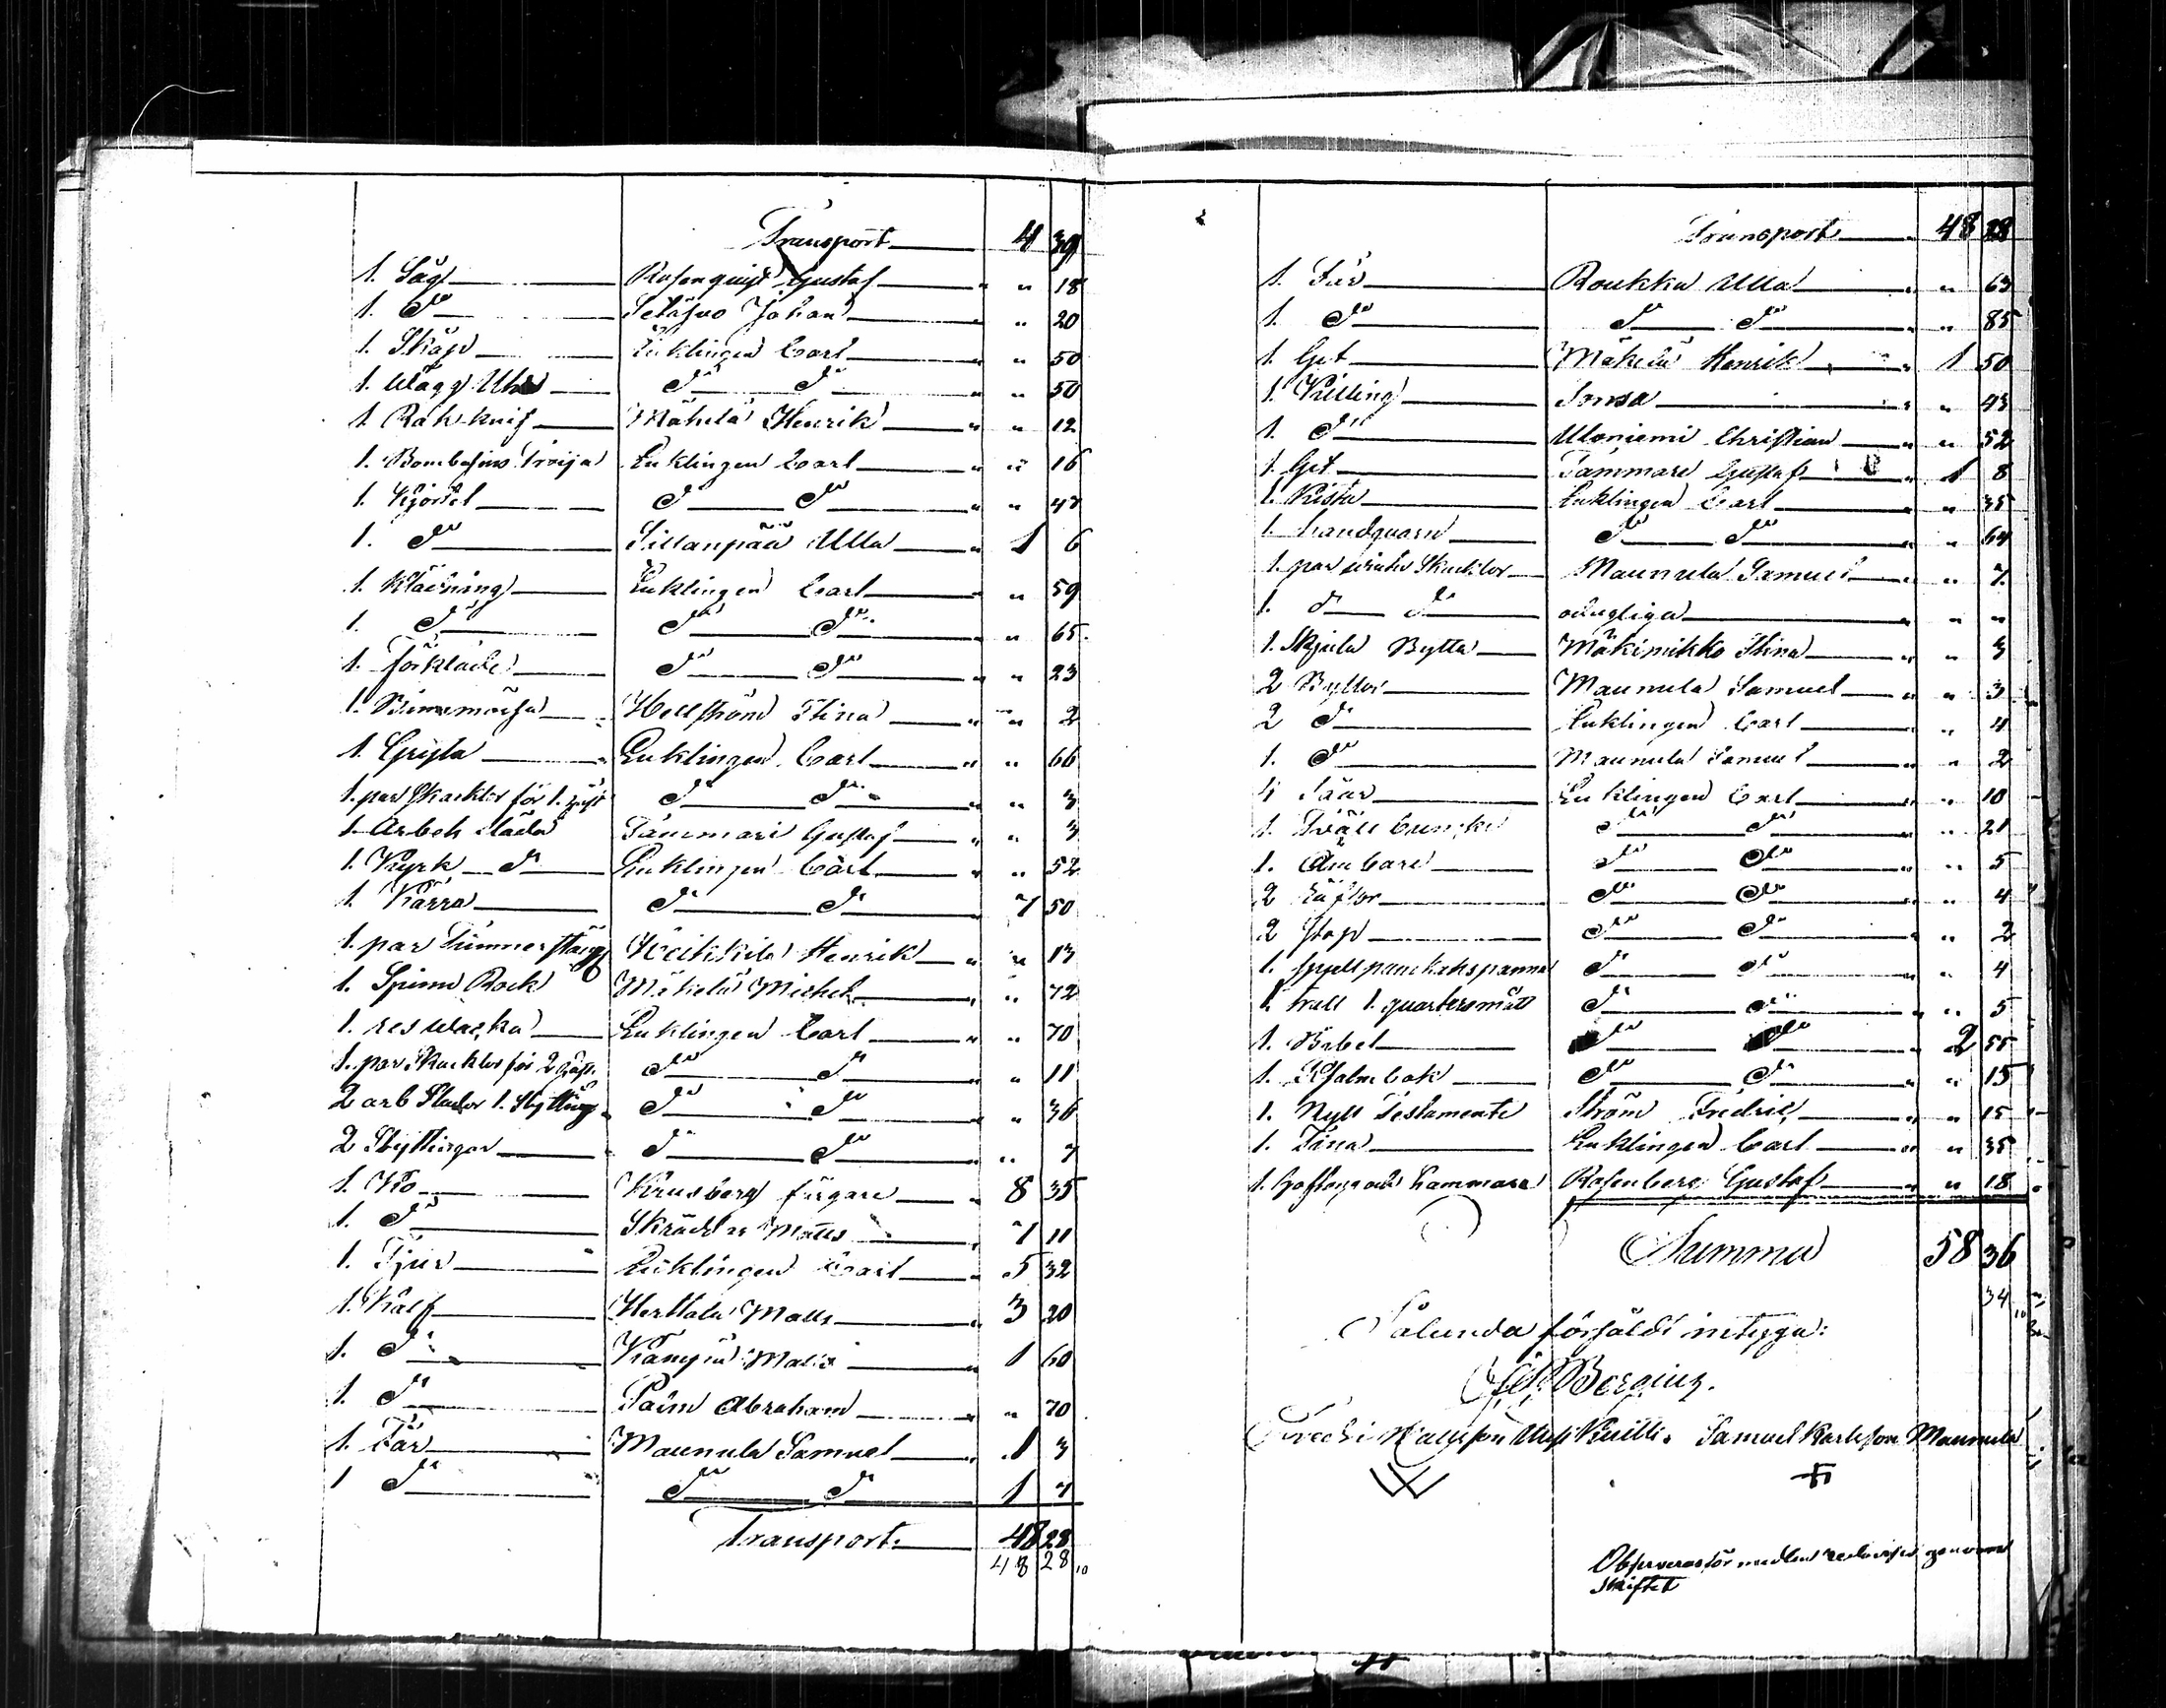 Transport 4 39
1. Såg Rosenquist Gustaf " 18
1. Do Setäjuo Johan " 20
1. Skåp Enklingen Carl " 50
1. Wägg Uhr Do Do " 50
1 Rak knif Mäkelä Henrik " 12
1. Bombasins Tröija Enklingen Carl " 16
1. Kjortel Do Do "
1. Do Sillanpää Ulla 1 6
1. Klädning Enklingen Carl " 59
1. Do Do Do " 65
1. Förkläde Do Do " 23
1. Bindmössa Hellström Stina " 2
1. Gryta Enklingen Carl " 66
1. par Skacklor för 1. häst Do Do " 3
1. Arbets Släda Tammari Gustaf " 3
1. Kyrk Do Enklingen Carl " 52
1. Kärra Do Do 7 50
1. par Timmerstäng Heikkilä Henrik " 13
1. Spinn Rock Mäkelä Michel " 72
1. res Wacka Enklingen Carl " 70
1. par Skacklor för 2 häst. Do Do " 11
2 arb Slador 1. Styttling Do Do " 36
2 Styttingar Do Do " 7
1. Ko Krusberg färgare 8 35
1. Do Skräddar Matts 7 11
1. Tjur Enklingen Carl 5 32
1. Kalf Herttala Matts 3 20
1. Do Kangas Matts 1 60
1. Do Palm Abraham " 70
1. Får Maunula Samuel 1 3
1 Do Do Do 1 7
Transport 48 28
48 28 10
Transport 48 28
1. Får Roukka Ulla " 63
1. Do Do Do " 85
1. Get Mäkelä Henrik 1 50
1. Killing Jonsa " 43
1. Do Uloniemi Christian " 52
1. Get Tammari Gustaf 1 8
1. Kista Enklingen Carl " 35
1. handquarn Do Do " 64
1. par Skacklor Maunula Samuel " 7
1. Do Do odugliga " "
1. Skjula Bytta Mäkimikko Stina " 3
2 Byttor Maunula Samuel " 3
2 Do Enklingen Carl " 4
1. Do Maunula Samuel " 2
4 Såar Enklingen Carl " 10
1. Do Do " 21
1. Ämbare Do Do " 5
2 Do Do " 4
2 Stop Do Do " 2
1. panckakspanna Do Do " 4
1. tratt 1. quartersmått Do Do " 5
1. Bibel Do Do 2 55
1. Psalmbok Do Do " 15
1. Nytt Testamente Ström Fredric " 15
1. Tina Enklingen Carl " 35
1. hammare Rosenberg Gustaf " 18
Summa 58 36
34 10
Sålunda försåldt intyga:
Bergius.
Samuel Karlsson Maunula
Observeras för medlen redovisas genom
Skiftet